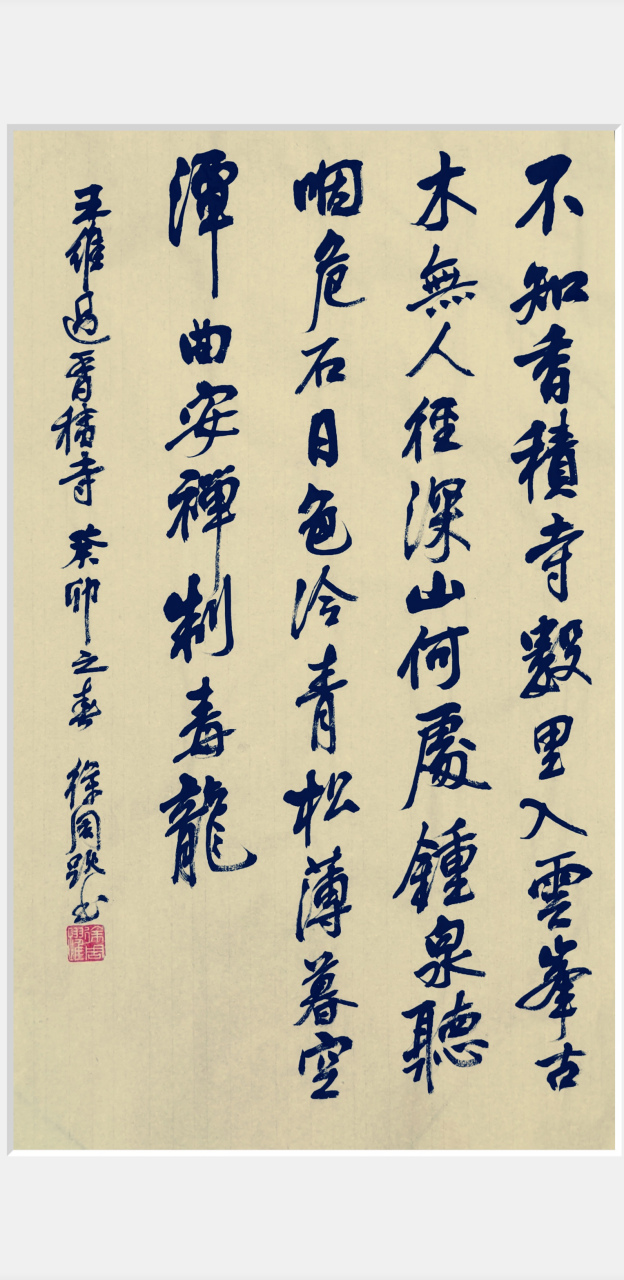 不知香積寺數里入雲峯古
木無人徑深山何處鍾泉聽
咽危石日色冷青松薄暮空
潭曲安禪制毒龍
王維過香積寺 癸卯之春 徐周跃书
徐周躍